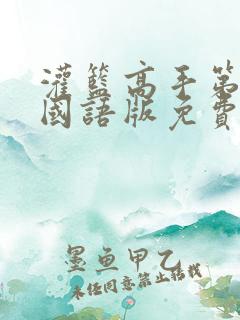 灌籃高手第
國語版免費
墨魚甲乙
未经同意禁止转载